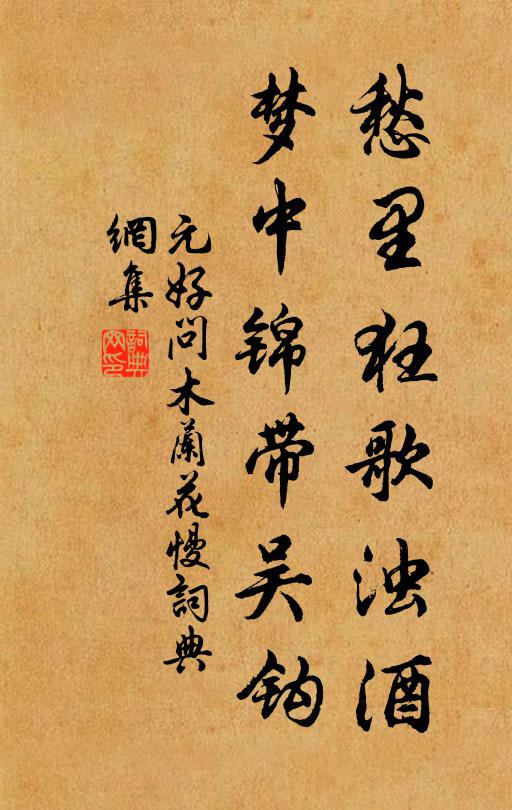 愁里狂歌浊酒
梦中锦带吴钩
元好问木蘭花慢詞典
網集
詞典
网印